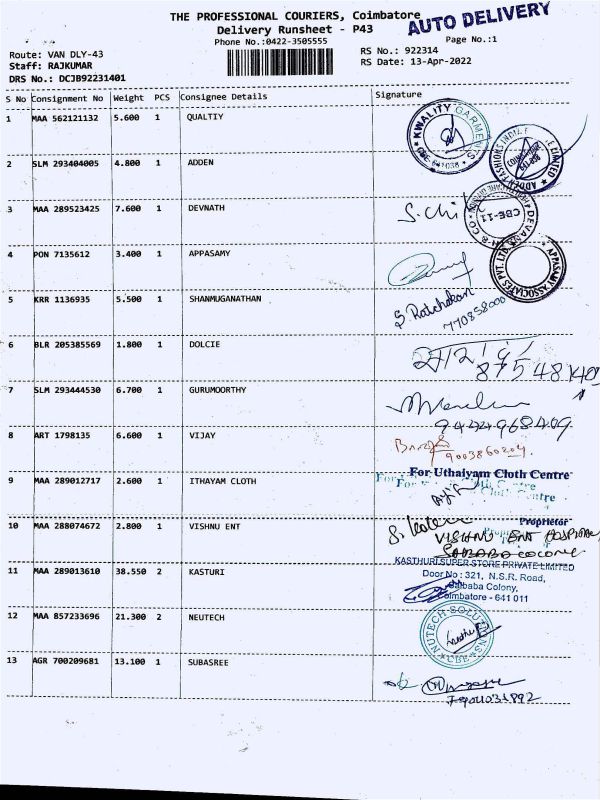 THE PROFESSIONAL COURIERS, Coimbatore
AUTO DELIVERY
Delivery Runsheet - P43
Phone No.:0422-3505555
Page No.:1
Route: VAN DLY-43
RS No.: 922314
Staff: RAJKUMAR
RS Date: 13-Apr-2022
DRS No.: DCJB92231401
S No Consignment No Weight PCS Consignee Details Signature
1 MAA 562121132 5.600 1 QUALTIY
KWALITY GARMENTS
CBE-641038
2 SLM 293404005 4.800 1 ADDEN
3 MAA 289523425 7.600 1 DEVNATH
CBE-11
4 PON 7135612 3.400 1 APPASAMY
APPASAMY ASSOCIATES PVT. LTD.
5 KRR 1136935 5.500 1 SHANMUGANATHAN
6 BLR 205385569 1.800 1 DOLCIE
7 SLM 293444530 6.700 1 GURUMOORTHY
9444968409
8 ART 1798135 6.600 1 VIJAY
9003860204
9 MAA 289012717 2.600 1 ITHAYAM CLOTH
For Uthaiyam Cloth Centre
Proprietor
10 MAA 288074672 2.800 1 VISHNU ENT
VISHNU ENT HOSPITAL
SAIBABA COLONY
11 MAA 289013610 38.550 2 KASTURI
KASTHURI SUPER STORE PRIVATE LIMITED
Door No : 321, N.S.R. Road,
Saibaba Colony,
Coimbatore - 641 011
12 MAA 857233696 21.300 2 NEUTECH
NUTECH SOLUTIONS
CBE
13 AGR 700209681 13.100 1 SUBASREE